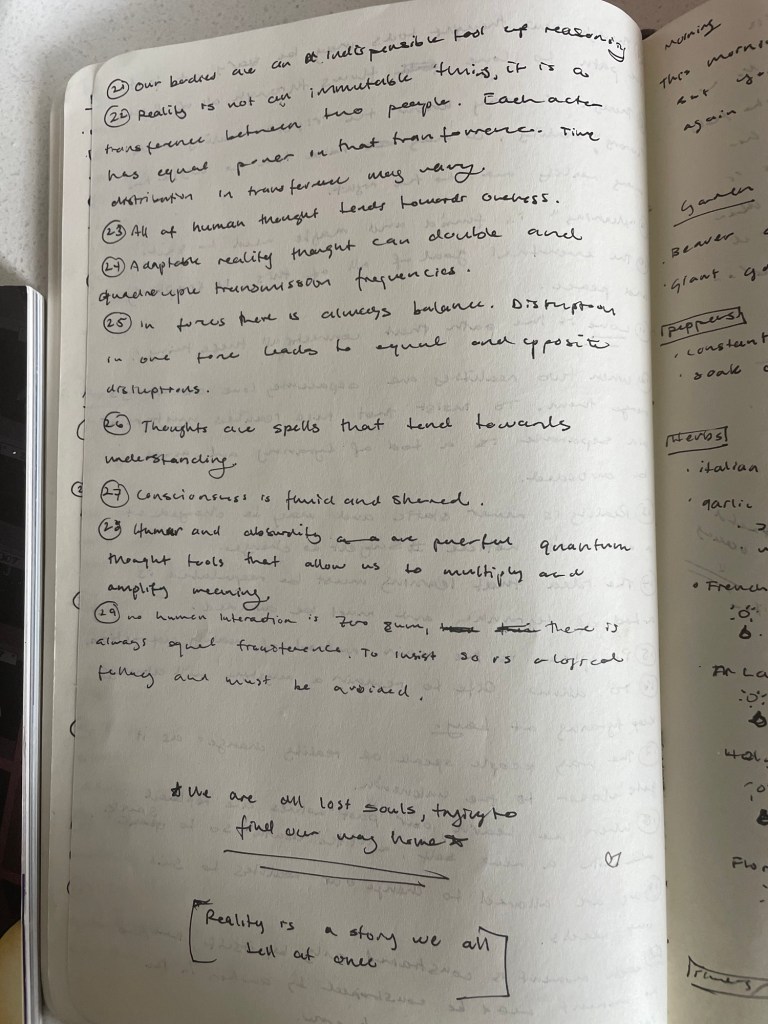 (21) Our bodies are an indispensible tool of reasoning
(22) Reality is not an immutable thing, it is a
transference between two people. Each actor
has equal power in that transference. Time
distribution in transference may vary.
(23) All of human thought tends towards oneness.
(24) Adaptable reality thought can double and
quadrouple transmission frequencies.
(25) in forces there is always balance. Disruption
in one force leads to equal and opposite
disruptions.
(26) Thoughts are spells that tend towards
understanding.
(27) consciousness is fluid and shared.
(28) Humor and absurdity are powerful quantum
thought tools that allow us to multiply and
amplify meaning.
(29) no human interaction is zero sum, there is
always equal transference. To insist so is a logical
fallacy and must be avoided.
*We are all lost souls, trying to
find our way home*
[Reality is a story we all
tell at once]
Morning
This morni
again
Garden
· Beaver
· Giant
Peppers
· constant
· soak
Herbs
· italian
· garlic
· French